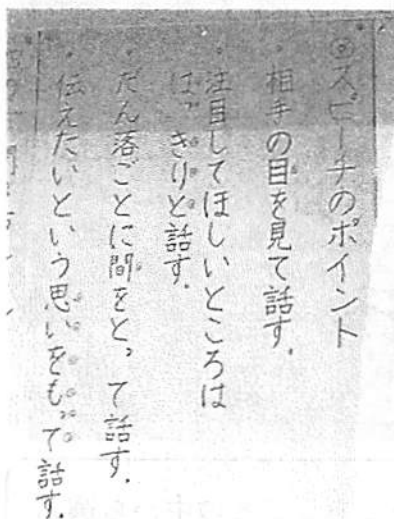 ◎スピーチのポイント
・相手の目を見て話す.
・注目してほしいところは
はっきりと話す.
・だん落ごとに間をとって話す.
・伝えたいという思いをもって話す.